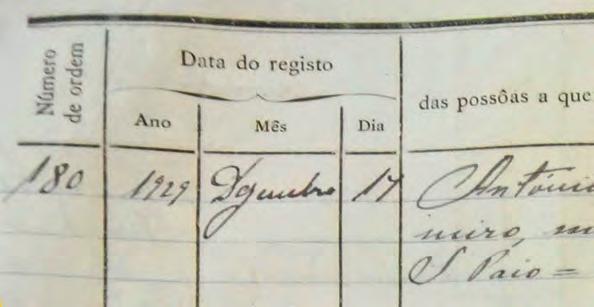 Número de ordem
Data do registo
das possôas a que
Ano
Mês
Dia
180 1929 Dezembro 17 António
meiro,
S Paio =